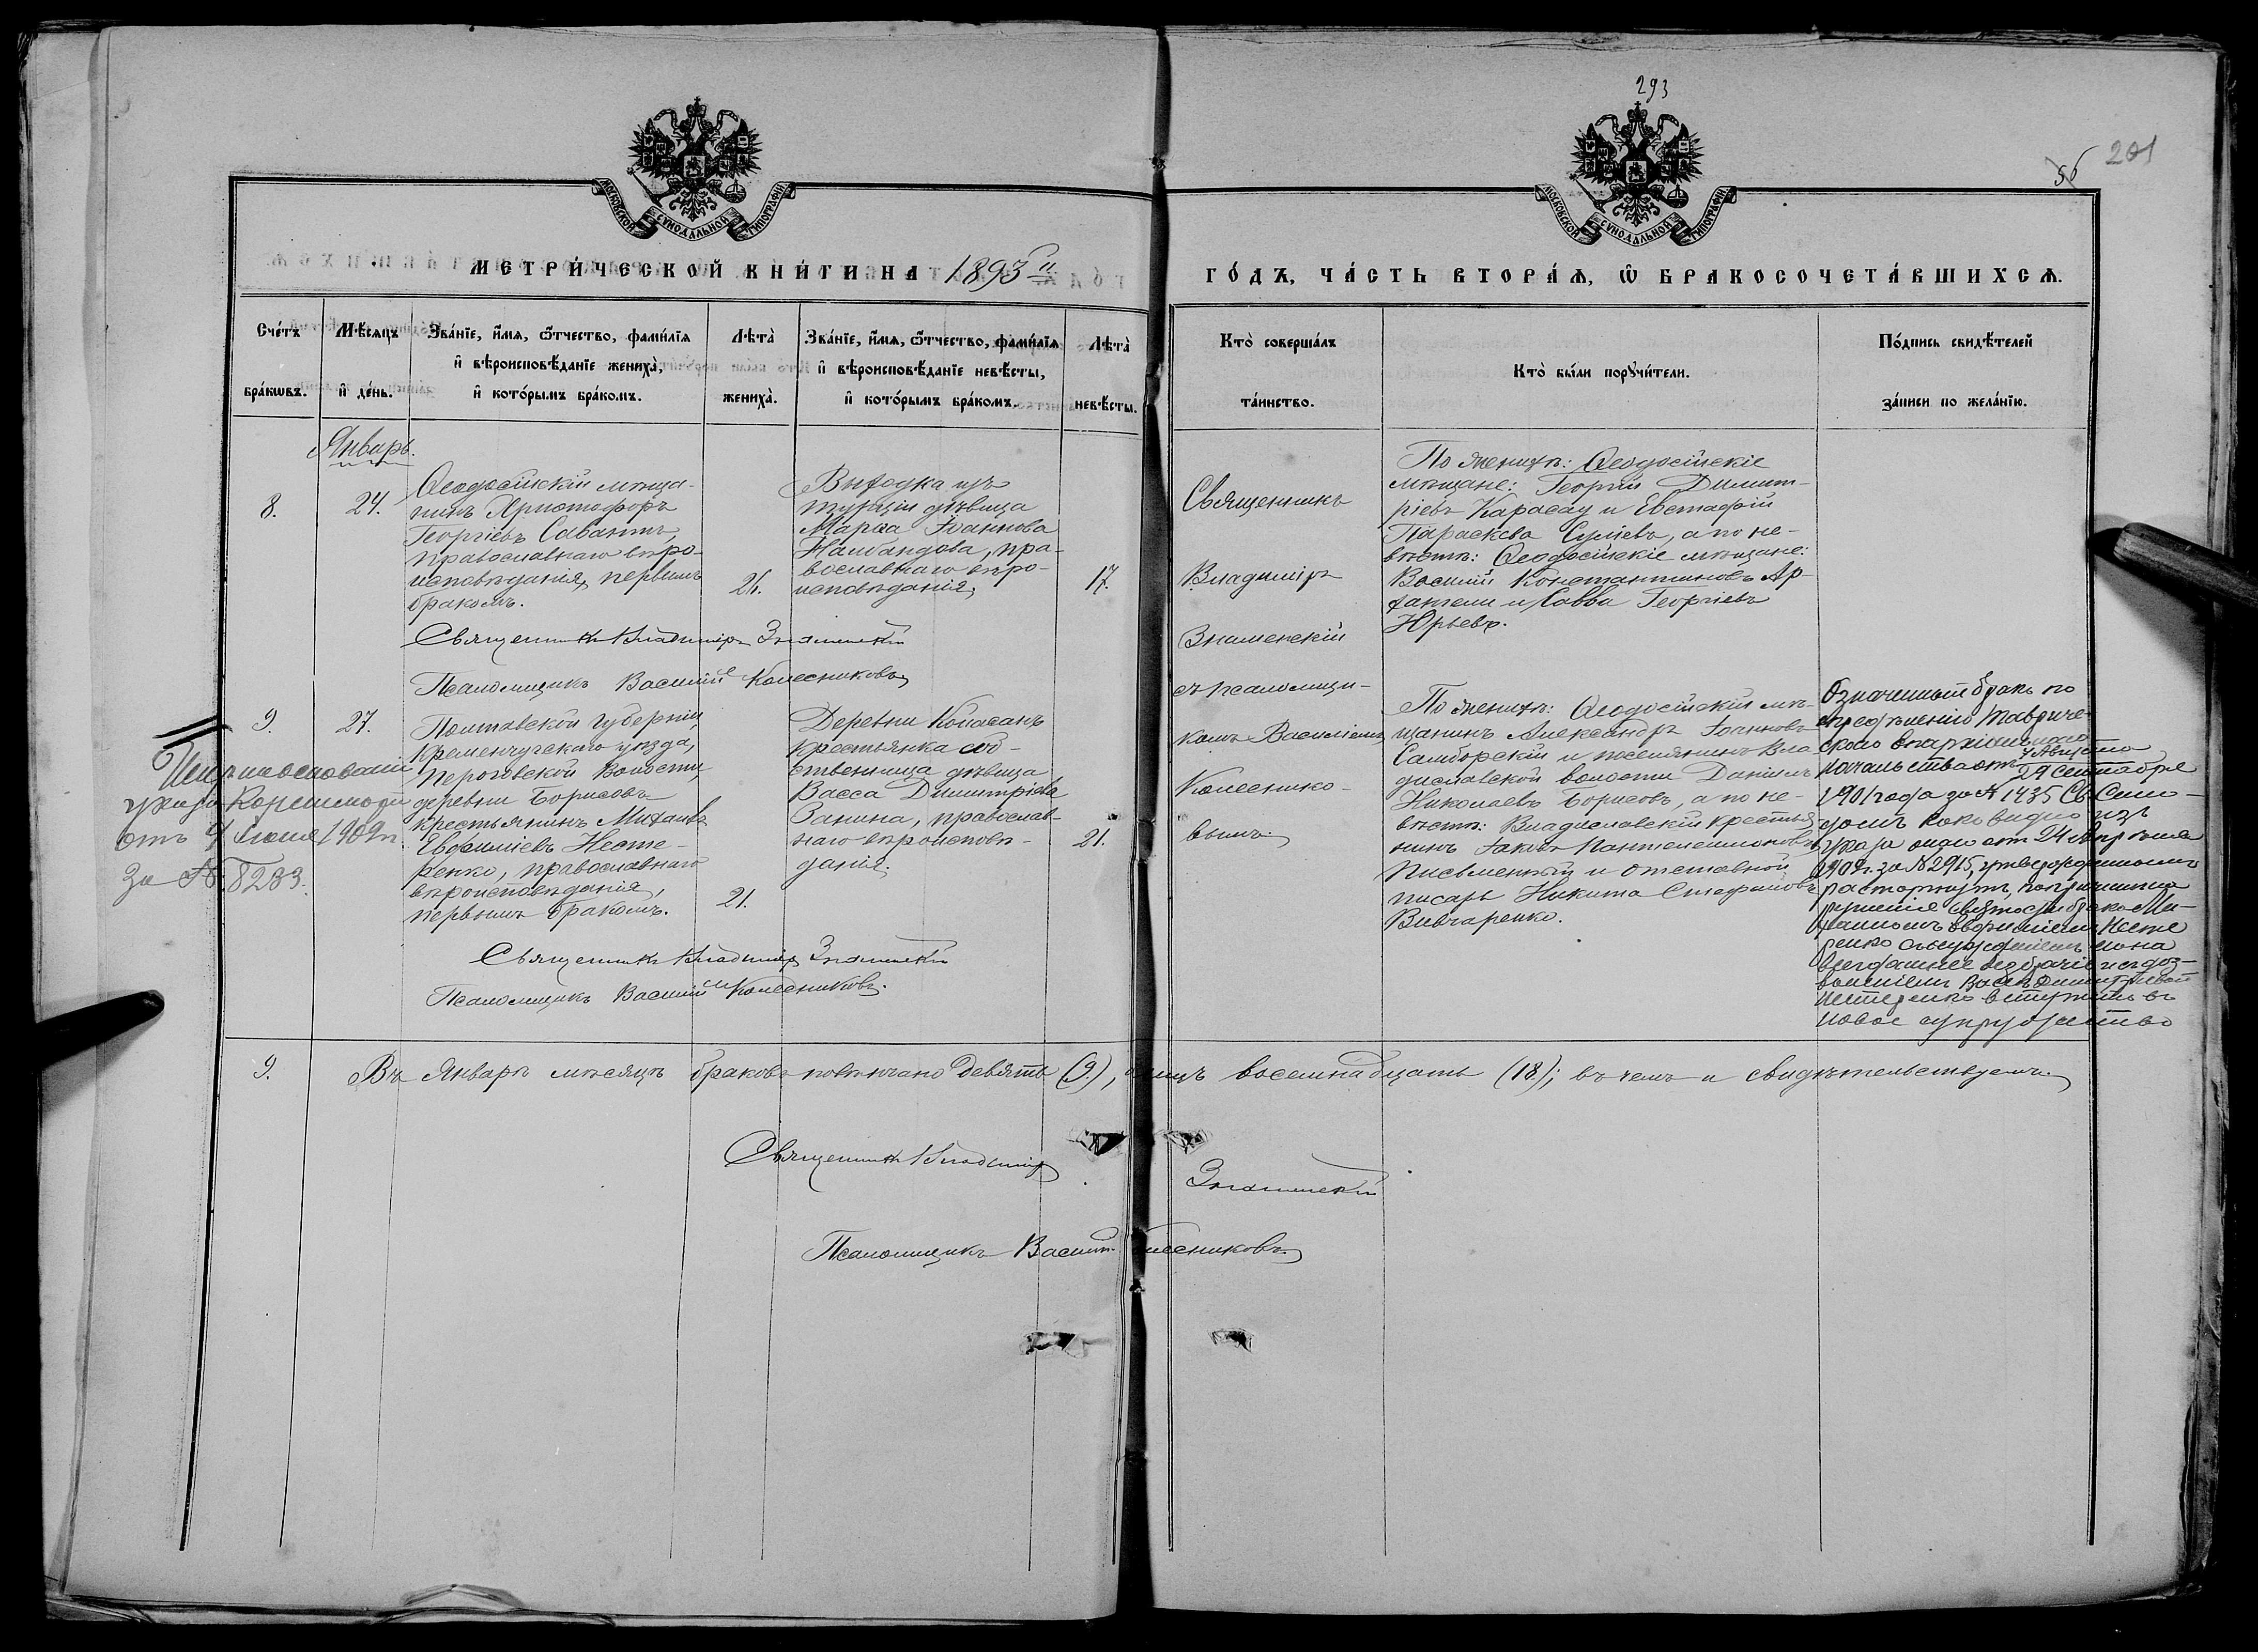 293
56 201
МОСКОВСКОЙ СѴНОДАЛЬНОЙ ТИПОГРАФІИ
МОСКОВСКОЙ СѴНОДАЛЬНОЙ ТИПОГРАФІИ
МЕТРИ́ЧЕСКОЙ КНИ́ГИ НА 1893й ГО́ДЪ, ЧА́СТЬ ВТОРА́Ѧ, Ѽ БРАКОСОЧЕТА́ВШИХСѦ.
Сче́тъ бра́кѡвъ.
Мѣ́сѧцъ и҆ де́нь.
Зва́нїе, и҆́мѧ, ѻ҆́тчество, фами́лїѧ
и҆ вѣроисповѣ́данїе жениха̀,
и҆ кото́рымъ бра́комъ.
Лѣта̀ жениха̀.
Зва́нїе, и҆́мѧ, ѻ҆́тчество, фами́лїѧ
и҆ вѣроисповѣ́данїе невѣ́сты,
и҆ кото́рымъ бра́комъ.
Лѣта̀ невѣ́сты.
Кто̀ соверша́лъ та́инство.
Кто̀ бы́ли порꙋчи́тели.
По́дпись свидѣ́телей
за́писи по жела́нїю.
Январь.
8.
24.
Ѳеодосійскій мѣща-
нинъ Христофоръ
Георгіевъ Савантъ,
православнаго вѣро-
исповѣданія, первымъ
бракомъ.
26.
Выходка изъ
Турціи дѣвица
Марѳа Іоаннова
Налбандова, пра-
вославнаго вѣро-
исповѣданія,
17.
Священникъ
Владиміръ
Знаменскій
съ псаломщи-
комъ Василіемъ
Колеснико-
вымъ.
По женихѣ: Ѳеодосійскіе
мѣщане: Георгій Димит-
ріевъ Карасау и Евстафій
Параскева Суліевъ, а по не-
вѣстѣ: Ѳеодосійскіе мѣщане:
Василій Константиновъ Ар-
хангели и Савва Георгіевъ
Юрьевъ.
Священникъ Владиміръ Знаменскій
Псаломщикъ Василій Колесниковъ
9.
27.
Полтавской губерніи,
Кременчугскаго уѣзда,
Пероговской волости,
деревни Борисовъ
крестьянинъ Михаилъ
Евфиміевъ Несте-
ренко, православнаго
вѣроисповѣданія,
первымъ бракомъ.
21.
Деревни Копасанъ
крестьянка соб-
ственница дѣвица
Васса Димитріева
Занина, православ-
наго вѣроисповѣ-
данія.
21.
По женихѣ: Ѳеодосійскій мѣ-
щанинъ Александръ Іоанновъ
Самборскій и поселянинъ Вла
диславской волости Даніилъ
Николаевъ Борисовъ, а по не-
вѣстѣ: Владиславскій крестья
нинъ Іаковъ Пантелеимоновъ
Письменный и отставной
писарь Никита Стефановъ
Вивчаренко.
Означенный бракъ по
опредѣленію Тавриче-
скаго епархіальнаго
начальства отъ 7 Августа
29 сентября
1901 года за № 1435 Св. Сино-
домъ какъ видно изъ
указа онаго отъ 24 апрѣля
1909 г. за № 2915, утвержденному
расторгнутъ, по причинѣ на
рушенія святости брака Ми-
хаиломъ Евфиміевымъ Несте
ренко съ осужденіемъ его на
всегдашнее безбрачіе и съ доз-
воленіемъ Вассѣ Димитріевой
Нестеренко вступить въ
новое супружество
Учинено на основаніи
указа Консисторіи
отъ 4 іюня 1909 г.
за № 8233.
Священникъ Владиміръ Знаменскій
Псаломщикъ Василій Колесниковъ.
9.
Въ Январѣ мѣсяцѣ браковъ повѣнчано девять (9.), лицъ восемнадцать (18.); въ чемъ и свидѣтельствуемъ.
Священникъ Владиміръ Знаменскій
Псаломщикъ Василій Колесниковъ